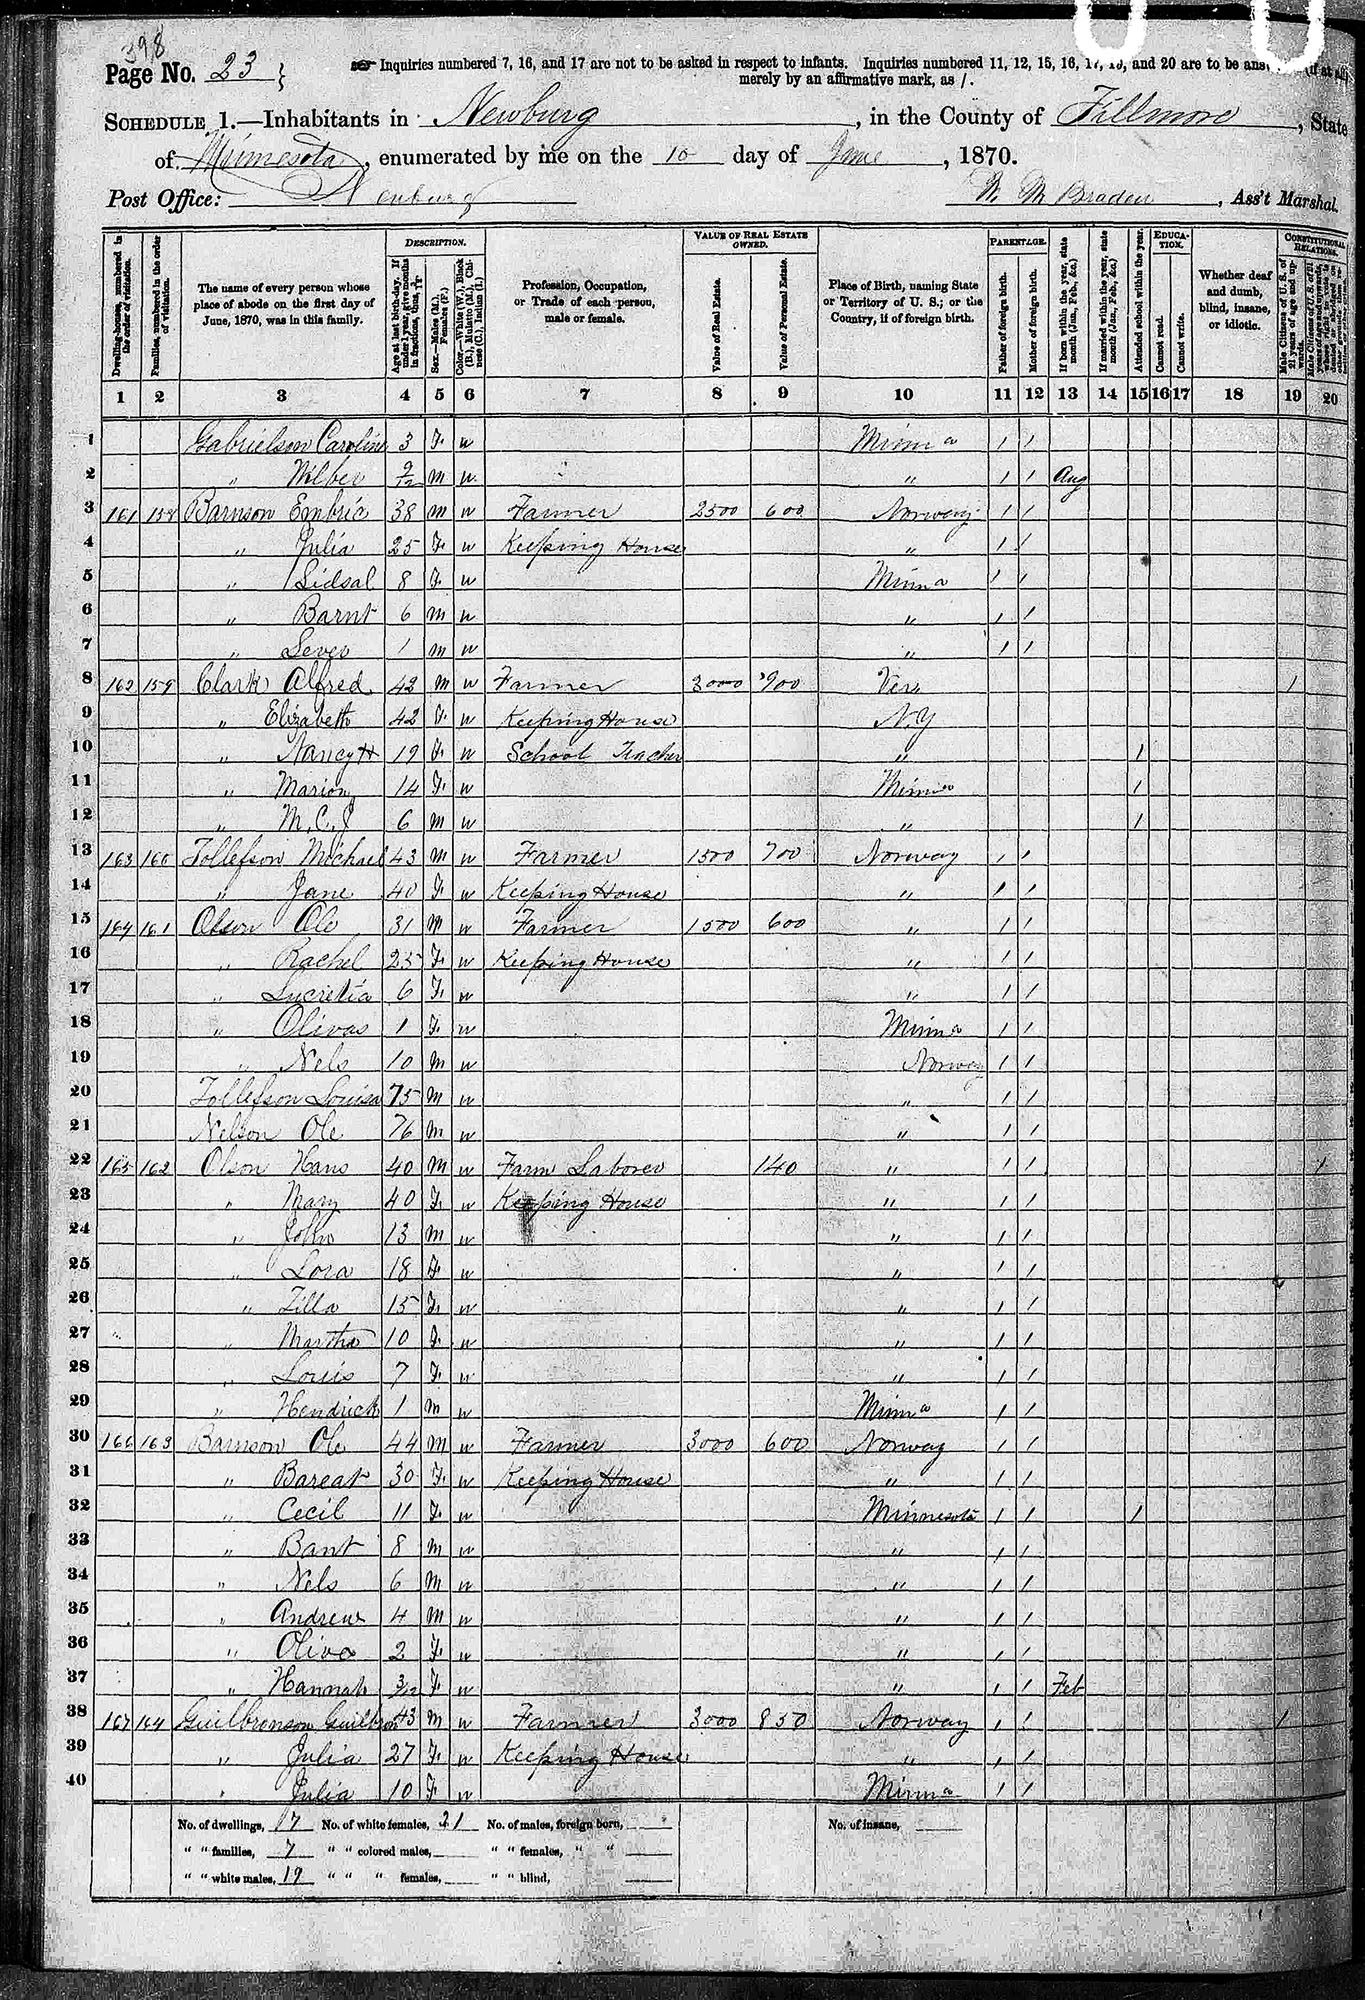 398
Page No. 23 }
☞ Inquiries numbered 7, 16, and 17 are not to be asked in respect to infants. Inquiries numbered 11, 12, 15, 16, 17, 19, and 20 are to be (if at all)
merely by an affirmative mark, as /.
SCHEDULE 1.—Inhabitants in Newburg, in the County of Fillmore, State
of Minnesota, enumerated by me on the 10 day of June, 1870.
Post Office: Newburg W. M Braden, Ass't Marshal.
Dwelling-houses, numbered in the order of visitation.
Families, numbered in the order of visitation.
The name of every person whose place of abode on the first day of June, 1870, was in this family.
DESCRIPTION.
Age at last birth-day. If under 1 year, give months in fractions, thus, 3/12
Sex.—Males (M.), Females (F.)
Color.—White (W.), Black (B.), Mulatto (M.), Chinese (C.), Indian (I.)
Profession, Occupation, or Trade of each person, male or female.
VALUE OF REAL ESTATE OWNED.
Value of Real Estate.
Value of Personal Estate.
Place of Birth, naming State or Territory of U. S.; or the Country, if of foreign birth.
PARENTAGE.
Father of foreign birth.
Mother of foreign birth.
If born within the year, state month (Jan., Feb., &c.)
If married within the year, state month (Jan., Feb., &c.)
Attended school within the year.
EDUCATION.
Cannot read.
Cannot write.
Whether deaf and dumb, blind, insane, or idiotic.
CONSTITUTIONAL RELATIONS.
Male Citizens of U. S. of 21 years of age and upwards.
1 2 3 4 5 6 7 8 9 10 11 12 13 14 15 16 17 18 19 20
1 Gabrielson Caroline 3 F w Minna / /
2 " Wilber 9/12 m w " / / Aug
3 161 158 Barnson Embric 38 m w Farmer 2500 600 Norway / /
4 " Julia 25 F w Keeping House " / /
5 " Sidsal 8 F w Minna / /
6 " Barnt 6 m w " / /
7 " Sever 1 m w " / /
8 162 159 Clark Alfred 42 m w Farmer 3000 900 Ver 1
9 " Elizabeth 42 F w Keeping House N.Y
10 " Nancy H 19 F w School Teacher " 1
11 " Marion 14 F w Minna 1
12 " M. C. J 6 m w " 1
13 163 160 Tollefson Michael 43 m w Farmer 1500 700 Norway / /
14 " Jane 40 F w Keeping House " / /
15 164 161 Olson Ole 31 m w Farmer 1500 600 " / /
16 " Rachel 25 F w Keeping House " / /
17 " Lucretia 6 F w " / /
18 " Olivas 1 F w Minna / /
19 " Nels 10 m w Norway / /
20 Tollefson Louisa 75 m w " / /
21 Nelson Ole 76 m w " / /
22 165 162 Olson Hans 40 m w Farm Laborer 140 " / / 1
23 " Mary 40 F w Keeping House " / /
24 " John 13 m w " / /
25 " Lora 18 F w " / /
26 " Tilla 15 F w " / /
27 " Martha 10 F w " / /
28 " Louis 7 F w " / /
29 " Hendrick 1 m w Minna / /
30 166 163 Barnson Ole 44 m w Farmer 3000 600 Norway / /
31 " Bareat 30 F w Keeping House " / /
32 " Cecil 11 F w Minnesota / / 1
33 " Bant 8 m w " / /
34 " Nels 6 m w " / /
35 " Andrew 4 m w " / /
36 " Oliva 2 F w " / /
37 " Hannah 3/12 F w " / / Feb
38 167 164 Guilbronson Guilbron 43 m w Farmer 3000 850 Norway / / 1
39 " Julia 27 F w Keeping House " / /
40 " Julia 10 F w Minna / /
No. of dwellings, 17 No. of white females, 21 No. of males, foreign born, No. of insane,
" " families, 7 " " colored males, " " females, " "
" " white males, 19 " " " females, " " blind,